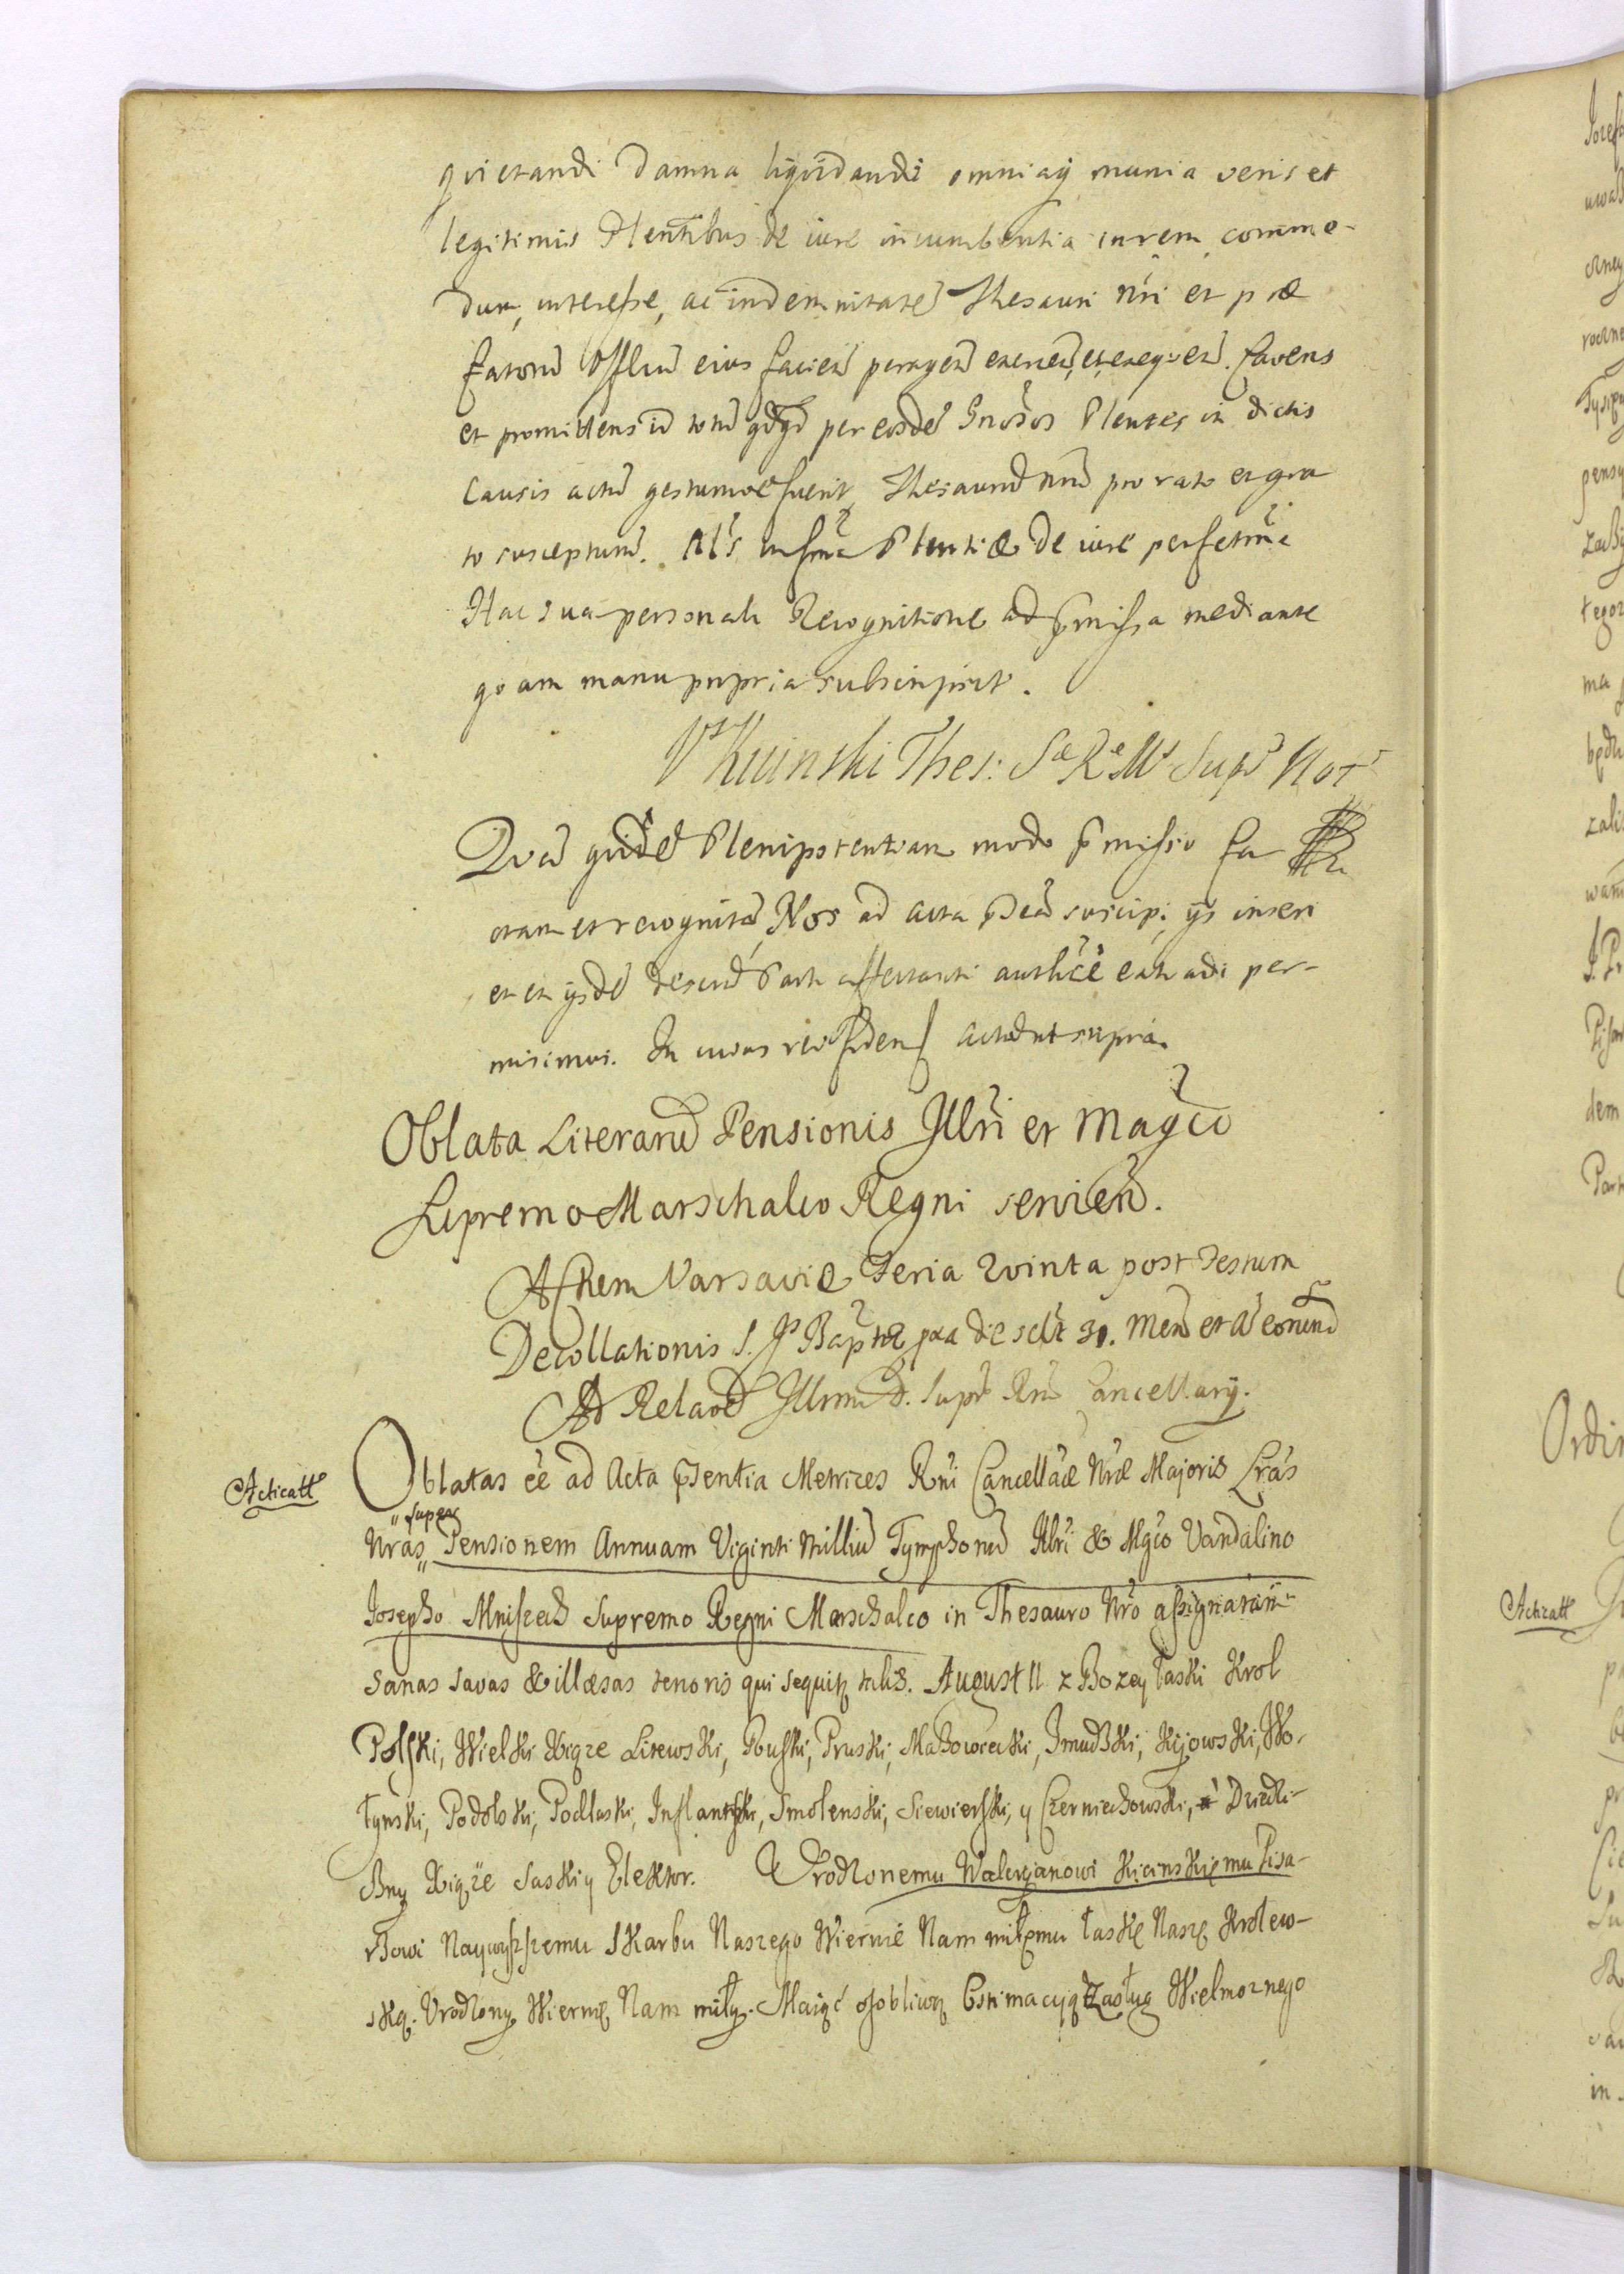 quietandi Damna liquidandi omniaq munia veris et
legitimis Plentibus de iure incumbentia in rem commo-
dum, interesse, ac indemnitate Thesauri nri et præ
fatoru Offliu eius faciend peragend exercend et exequend. favens
et promittens id totu qdqd per eosde Gnosos Plentes in dictis
causis actu gestumve fuerit Thesauru nru pro rato et gra
to suscepturu. Als in fma Plentiæ de iure
Hac sua personali Recognitione ad pmissa mediante
qoam manu propria subscripsit.
VKicinski Thes: Sæ Ræ Mtis Supr Not
Qva quide Plenipotentiam modo pmisso fa
ctam et recognita, Nos ad Acta pdca suscipi, ijs inseri
et ex ijsde Parti affectanti authce extradi per-
misimus. In cuius rei fidem Actu ut supra.
Oblata Literaru Pensionis Illri et Magco
Supremo Marschalco Regni servien.
Actum Varsaviæ Feria Qvinta post Festum
Decollationis S. Js Baptæ pxa die sclt 31. Men et a eorund
Ad Relaoe Illrmi D. Supr Rni Cancellarij.
Acticatt
Oblatas ee ad Acta psentia Metrices Rni Cancellæ Nræ Majoris Lras
" super
Nras" Pensionem Annuam Viginti Milliu Tymphoru Illri & Mgco Vandalino
Josepho Mniszech Supremo Regni Marschalco in Thesauro Nro assignatam
sanas salvas & illæsas tenoris qui sequitr talis. August II z Bozey łaski Krol
Polski, Wielki Xiąze Litewski, Ruski, Pruski, Mazowiecki, Zmudzki, Kijowski, Wo-
łynski, Podolski, Podlaski, Inflantski, Smolenski, Siewierski, y Czerniechowski, a Dziedzi-
czny Xiąże Saski y Elektor. Urodzonemu Waleryanowi Kicinskiemu Pisa-
rzowi Naywyszszemu Skarbu Naszego Wiernie Nam miłemu łaskę Naszę Krolew-
ską. Urodzony Wiernie Nam miły. Maiąc osobliwą Estimacyą Zasług Wielmoznego